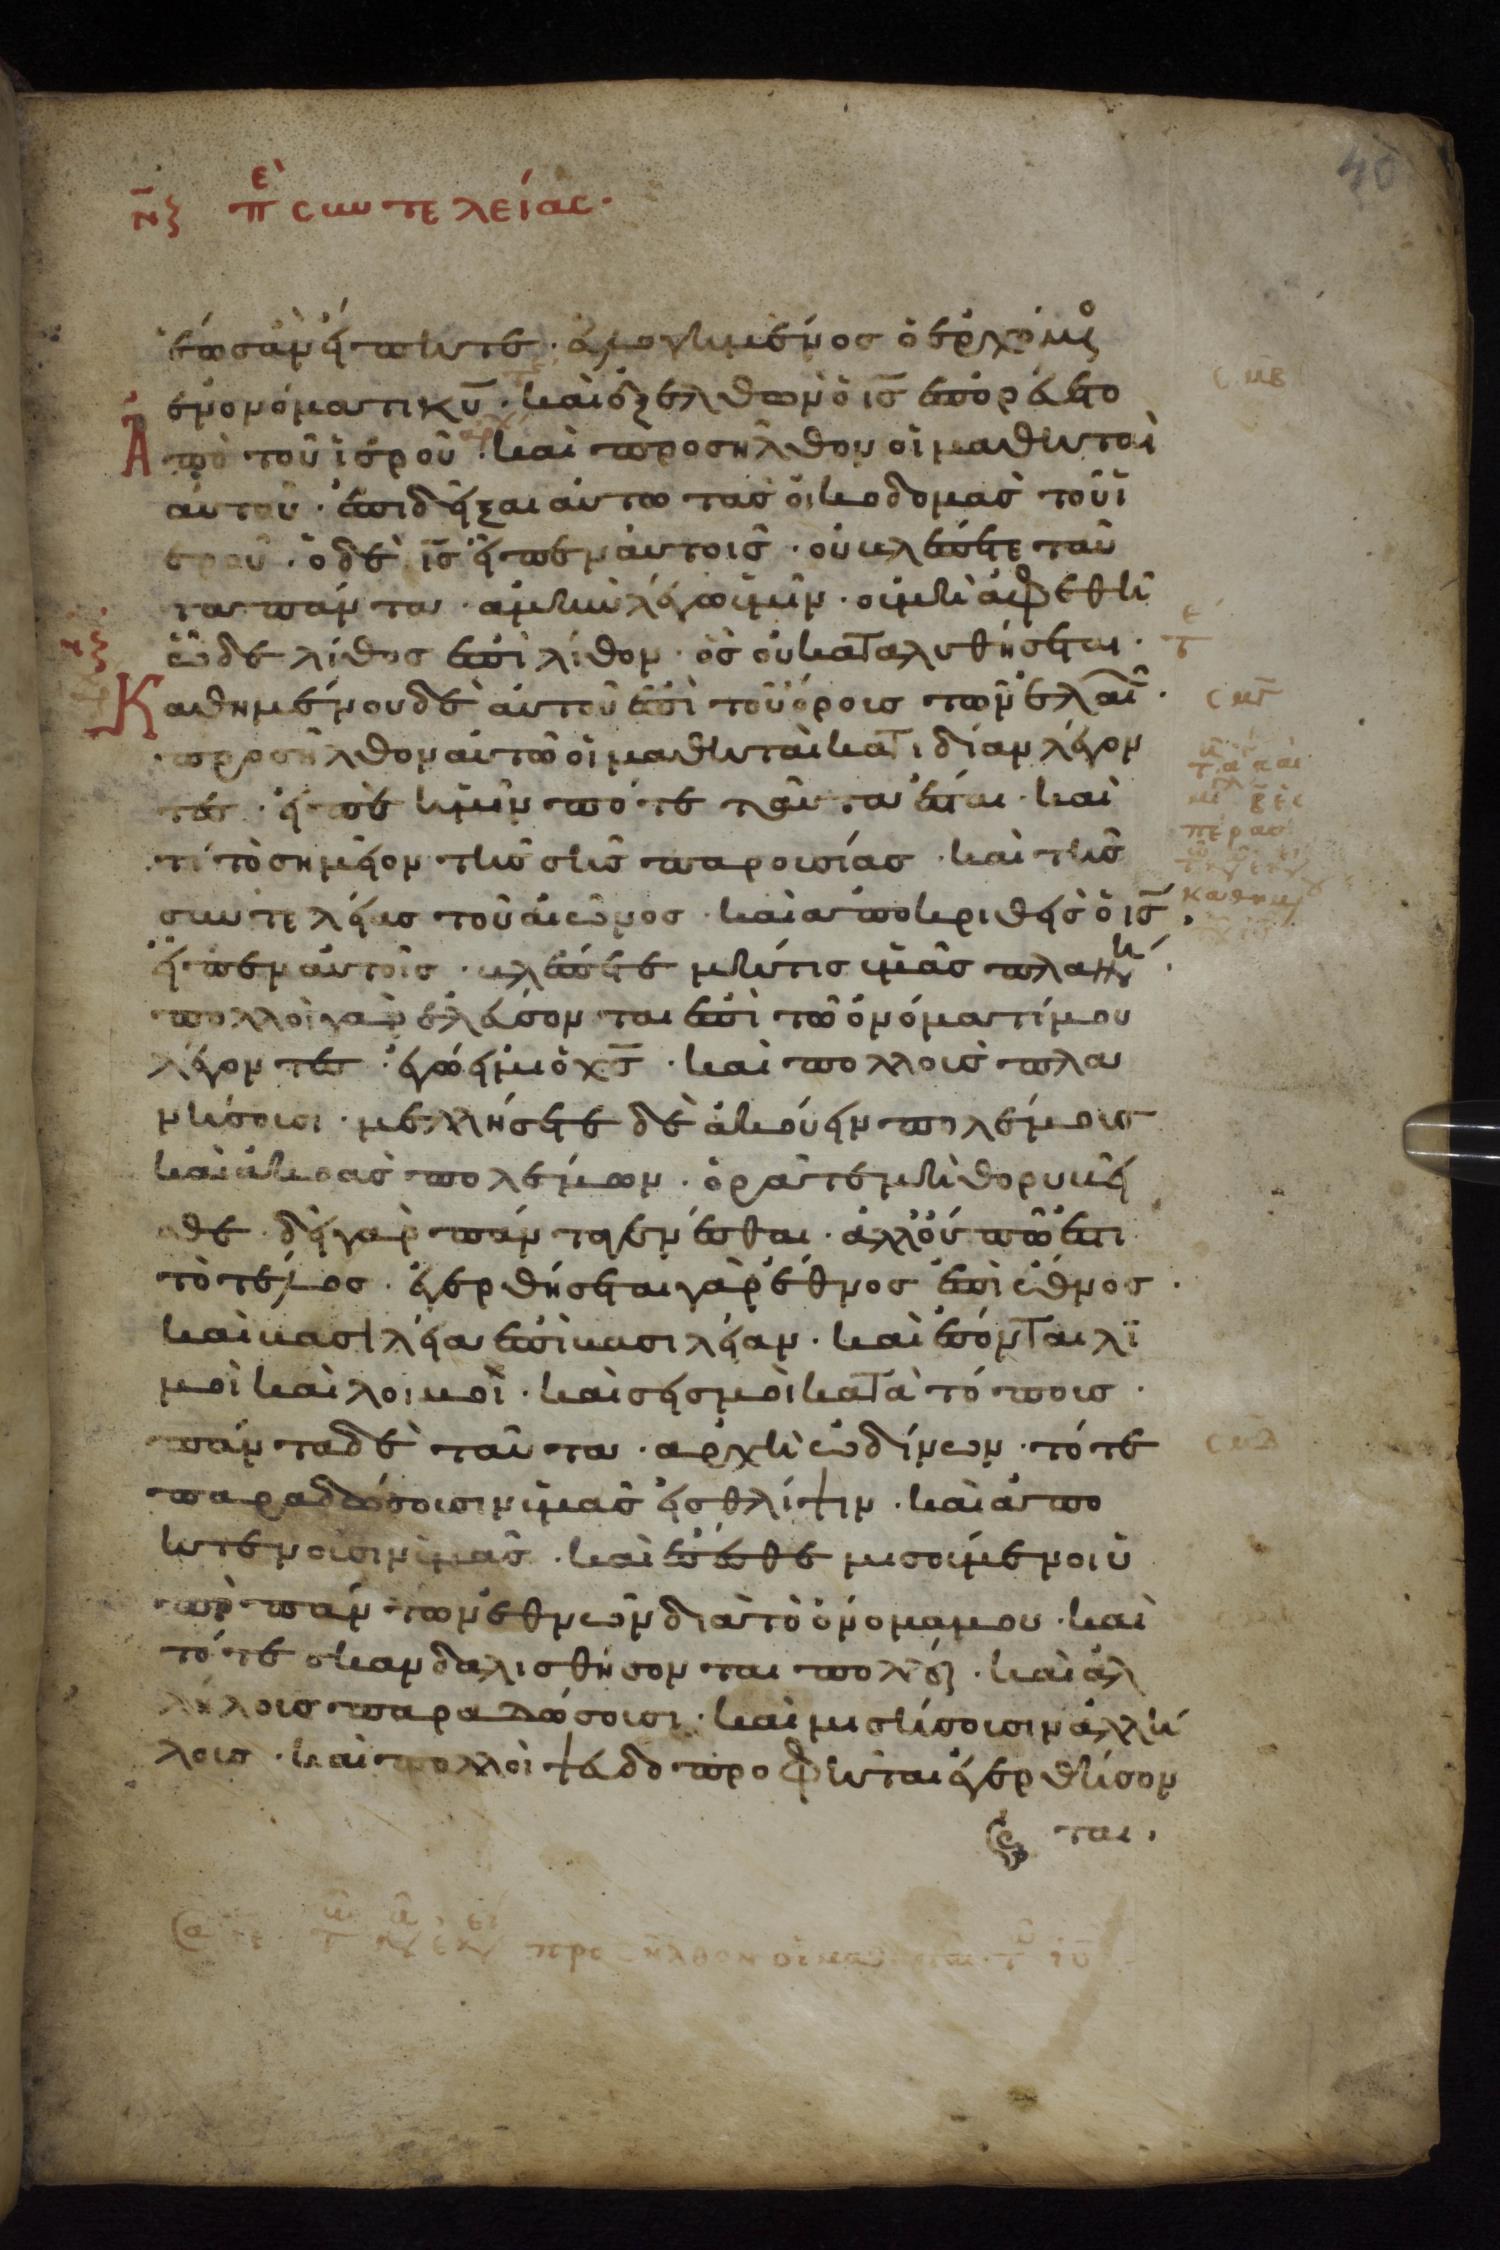 νζ περὶ συντελείας·
ἕωσ ἂν εἴπητε· εὐλογημένος ὁ ἐρχόμενος
ἐν ὀνόματι κυ̅· καὶ ἐξελθὼν ὁ ις̅ ἐπορεύετο
Ἀπὸ τοῦ ἱεροῦ· καὶ προσῆλθον οἱ μαθηταὶ
αὐτοῦ· ἐπιδεῖξαι αὐτῶ τὰς οἰκοδομὰς τοῦ ἱ
εροῦ· ὁ δὲ ις̅ εἶπεν αὐτοῖς· οὐ βλέπετε ταῦ
τα πάντα· ἀμὴν λέγω ὑμῖν· οὐ μὴ ἀφεθῆ
ὧδε λίθος ἐπὶ λίθον· ὃς οὐ καταλυθήσεται·
Καθημένου δὲ αὐτοῦ ἐπὶ τοῦ ὄρους τῶν ἐλαιῶν·
προσῆλθον αὐτῶ οἱ μαθηταὶ κατιδίαν λέγον
τες· εἰπὲ ἡμῖν πότε ταῦτα ἔσται· καὶ
τί τὸ σημεῖον τῆς σῆς παρουσίας· καὶ τῆς
συντελείας τοῦ αἰῶνος· καὶ ἀποκριθεὶς ὁ ις̅
εἶπεν αὐτοῖς· βλέπετε μήτις ὑμᾶς πλανήση·
πολλοὶ γὰρ ἐλεύσονται ἐπὶ τῶ ὀνόματί μου
λέγοντες· ἐγώ εἰμι ὁ χς̅· καὶ πολλοὺς πλα
νήσουσι· μελλήσετε δὲ ἀκούειν πολέμους
καὶ ἀκοὰς πολέμων· ὁρᾶτε μὴ θορυβεῖ
σθε· δεῖ γὰρ πάντα γενέσθαι· ἀλλ' οὔπω ἐστι
τὸ τέλος· ἐγερθήσεται γὰρ ἔθνος ἐπὶ ἔθνος·
καὶ βασιλεία ἐπὶ βασιλείαν· καὶ ἔσονται λι
μοὶ καὶ λοιμοὶ· καὶ σεισμοὶ κατὰ τόπους·
πάντα δὲ ταῦτα· ἀρχὴ ὠδίνων· τότε
παραδώσουσιν ὑμᾶς εἰς θλίψιν· καὶ ἀπο
κτενοῦσιν ὑμᾶς· καὶ ἔσεσθε μισούμενοι ὑ
πὸ πάντων ἐθνῶν διὰ τὸ ὄνομα μου· καὶ
τότε σκανδαλισθήσονται πολλοί· καὶ ἀλ
λήλους παραδώσουσι· καὶ μισήσουσιν ἀλλή
λους· καὶ πολλοὶ ψευδοπροφῆται ἐγερθήσον
ται·
προσῆλθον οἱ μαθηταὶ τῶ ιυ̅